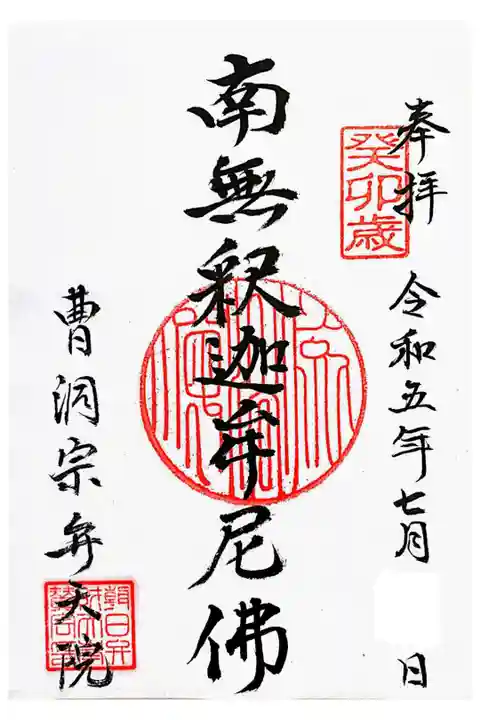 奉拝
癸卯歳
令和五年七月 日
南無釈迦牟尼佛
曹洞宗弁天院